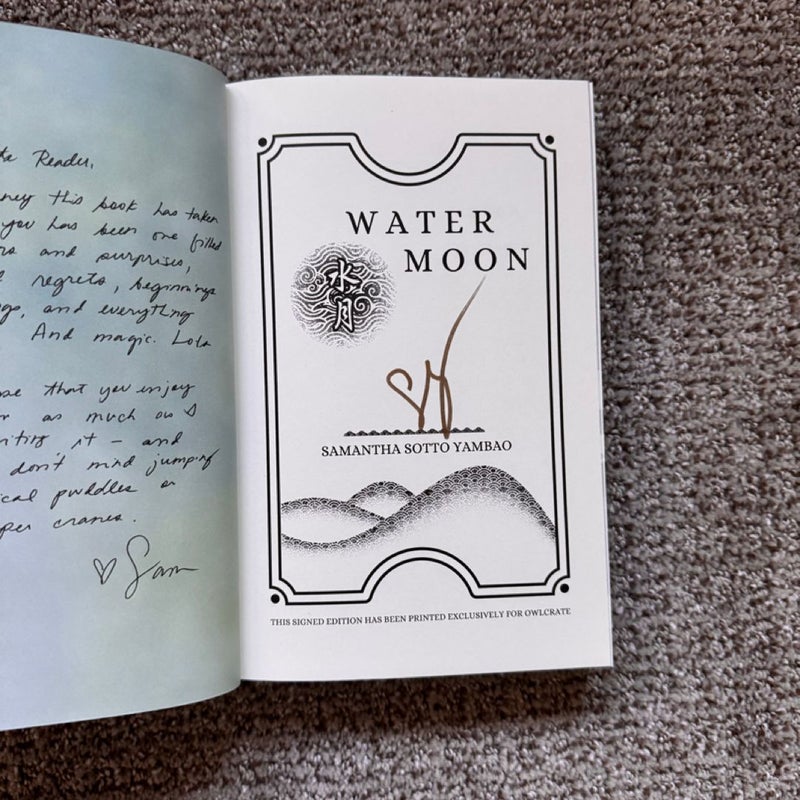 Reader,
this book has taken
you has been one filled
and surprises,
regrets, beginnings
and everything
And magic. Lola
that you enjoy
as much as I
writing it — and
don't mind jumping
puddles or
cranes.
♡ Sam
WATER
MOON
水月
SAMANTHA SOTTO YAMBAO
THIS SIGNED EDITION HAS BEEN PRINTED EXCLUSIVELY FOR OWLCRATE